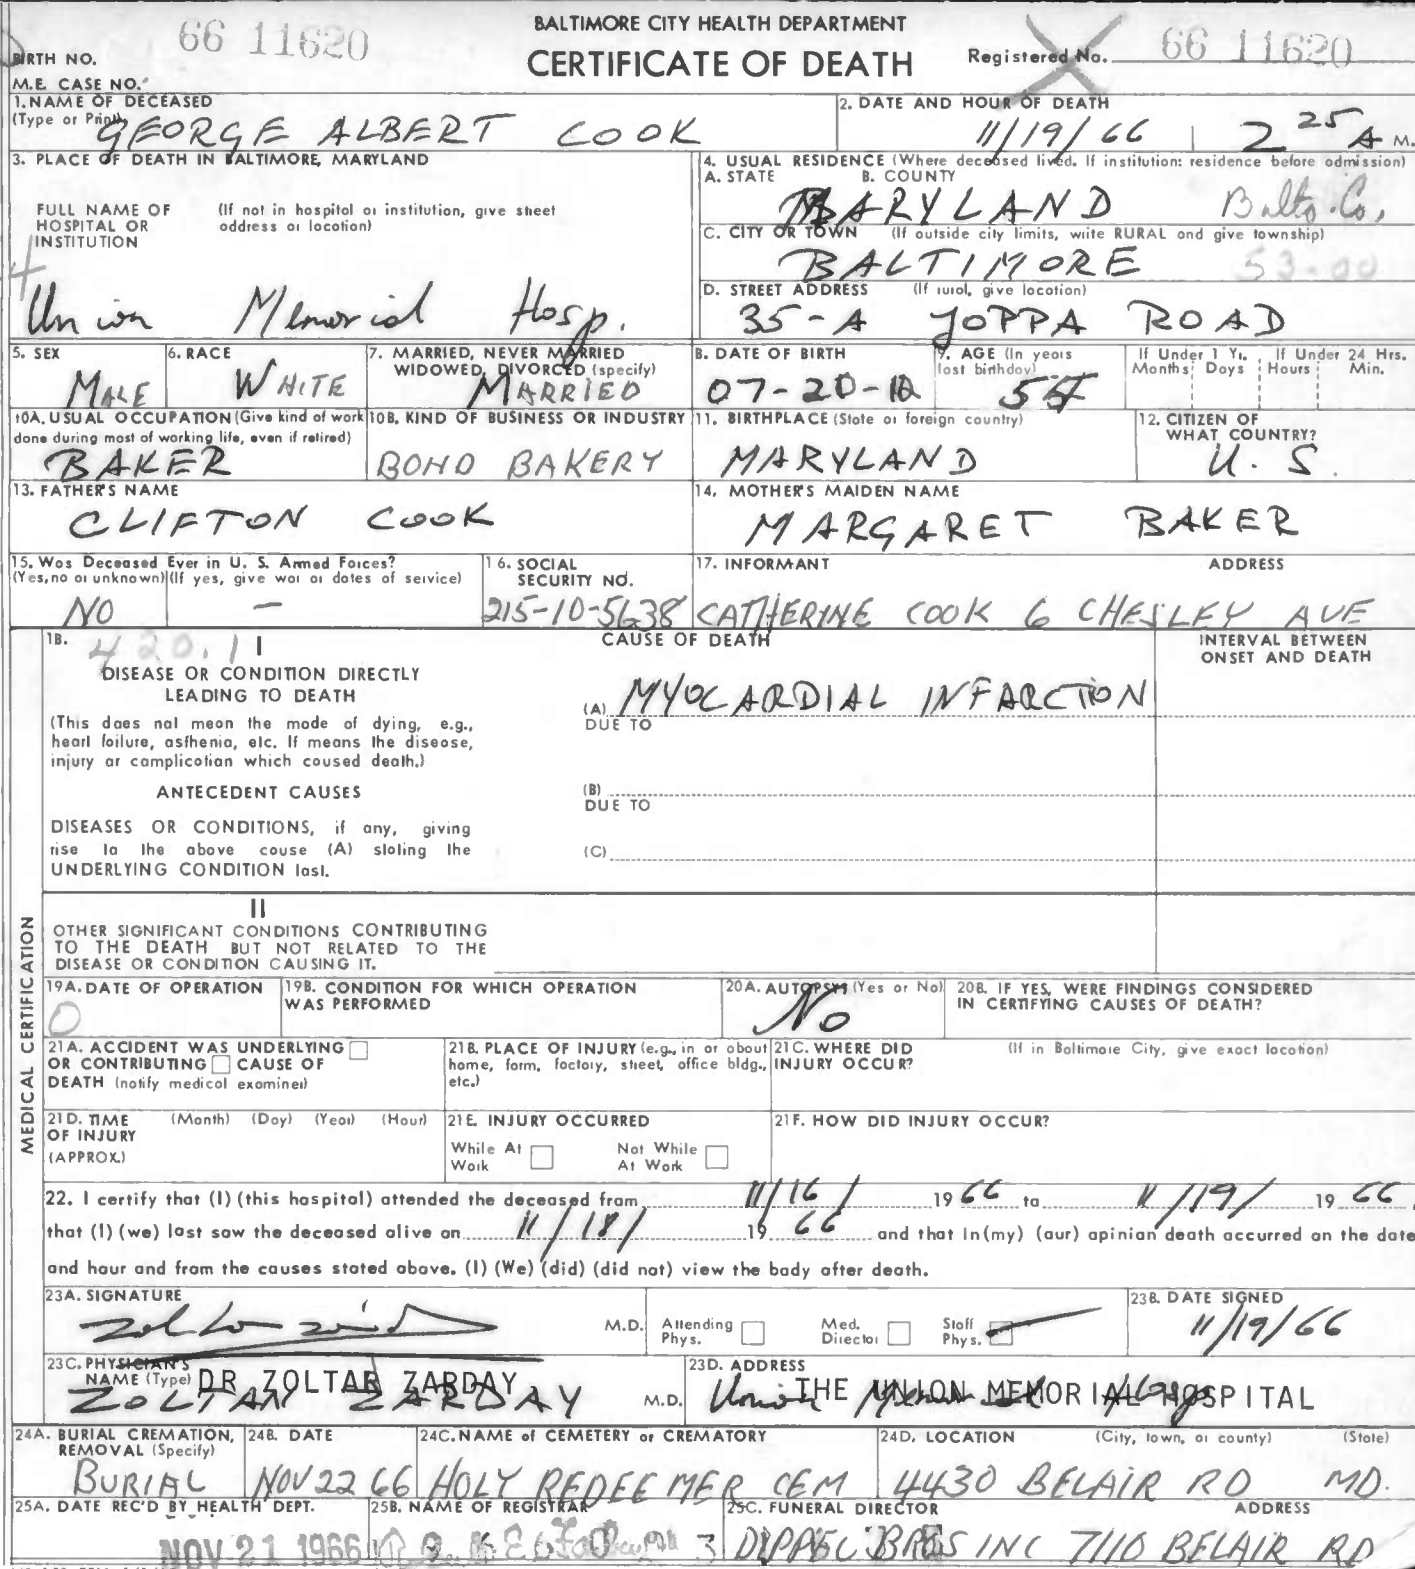 BALTIMORE CITY HEALTH DEPARTMENT
CERTIFICATE OF DEATH
BIRTH NO. 66 11620
Registered No. 66 11620
M.E. CASE NO.
1. NAME OF DECEASED (Type or Print) GEORGE ALBERT COOK
2. DATE AND HOUR OF DEATH 11/19/66 2 25 A M.
3. PLACE OF DEATH IN BALTIMORE, MARYLAND
FULL NAME OF HOSPITAL OR INSTITUTION (If not in hospital or institution, give street address or location)
Union Memorial Hosp.
4. USUAL RESIDENCE (Where deceased lived. If institution: residence before admission)
A. STATE B. COUNTY
MARYLAND Balto. Co.
C. CITY OR TOWN (If outside city limits, write RURAL and give township)
BALTIMORE 53-00
D. STREET ADDRESS (If rural, give location)
35-A JOPPA ROAD
5. SEX MALE
6. RACE WHITE
7. MARRIED, NEVER MARRIED WIDOWED, DIVORCED (specify) MARRIED
8. DATE OF BIRTH 07-20-12
9. AGE (In years last birthday)
If Under 1 Yr. Months Days
If Under 24 Hrs. Hours Min.
10A. USUAL OCCUPATION (Give kind of work done during most of working life, even if retired) BAKER
10B. KIND OF BUSINESS OR INDUSTRY BOND BAKERY
11. BIRTHPLACE (State or foreign country) MARYLAND
12. CITIZEN OF WHAT COUNTRY? U. S.
13. FATHER'S NAME CLIFTON COOK
14. MOTHER'S MAIDEN NAME MARGARET BAKER
15. Was Deceased Ever in U. S. Armed Forces? (Yes, no or unknown) (If yes, give war or dates of service)
NO —
16. SOCIAL SECURITY NO. 215-10-5638
17. INFORMANT ADDRESS
CATHERINE COOK 6 CHESLEY AVE
18. 420.1 I
CAUSE OF DEATH
INTERVAL BETWEEN ONSET AND DEATH
DISEASE OR CONDITION DIRECTLY LEADING TO DEATH
(This does not mean the mode of dying, e.g., heart failure, asthenia, etc. It means the disease, injury or complication which caused death.)
(A) MYOCARDIAL INFARCTION
DUE TO
ANTECEDENT CAUSES
(B)
DUE TO
DISEASES OR CONDITIONS, if any, giving rise to the above cause (A) stating the UNDERLYING CONDITION last.
(C)
II
OTHER SIGNIFICANT CONDITIONS CONTRIBUTING TO THE DEATH BUT NOT RELATED TO THE DISEASE OR CONDITION CAUSING IT.
MEDICAL CERTIFICATION
19A. DATE OF OPERATION 0
19B. CONDITION FOR WHICH OPERATION WAS PERFORMED
20A. AUTOPSY? (Yes or No) No
20B. IF YES, WERE FINDINGS CONSIDERED IN CERTIFYING CAUSES OF DEATH?
21A. ACCIDENT WAS UNDERLYING OR CONTRIBUTING CAUSE OF DEATH (notify medical examiner)
21B. PLACE OF INJURY (e.g., in or about home, farm, factory, street, office bldg., etc.)
21C. WHERE DID INJURY OCCUR? (If in Baltimore City, give exact location)
21D. TIME OF INJURY (APPROX.) (Month) (Day) (Year) (Hour)
21E. INJURY OCCURRED
While At Work Not While At Work
21F. HOW DID INJURY OCCUR?
22. I certify that (I) (this hospital) attended the deceased from 11/16/ 19 66 to 11/19/ 19 66,
that (I) (we) last saw the deceased alive on 11/18/ 19 66 and that in (my) (our) opinian death accurred on the date
and hour and from the causes stated above. (I) (We) (did) (did not) view the body after death.
23A. SIGNATURE M.D.
Attending Phys. Med. Director Staff Phys.
23B. DATE SIGNED 11/19/66
23C. PHYSICIAN'S NAME (Type) DR ZOLTAN ZARDAY
ZOLTAN ZARDAY M.D.
23D. ADDRESS THE UNION MEMORIAL HOSPITAL
Union Memorial Hosp
24A. BURIAL CREMATION, REMOVAL (Specify) BURIAL
24B. DATE NOV 22 66
24C. NAME of CEMETERY or CREMATORY HOLY REDEEMER CEM
24D. LOCATION (City, town, or county) (State)
4430 BELAIR RD MD.
25A. DATE REC'D BY HEALTH DEPT. NOV 21 1966
25B. NAME OF REGISTRAR
25C. FUNERAL DIRECTOR ADDRESS
DIPPEL BROS INC 7110 BELAIR RD